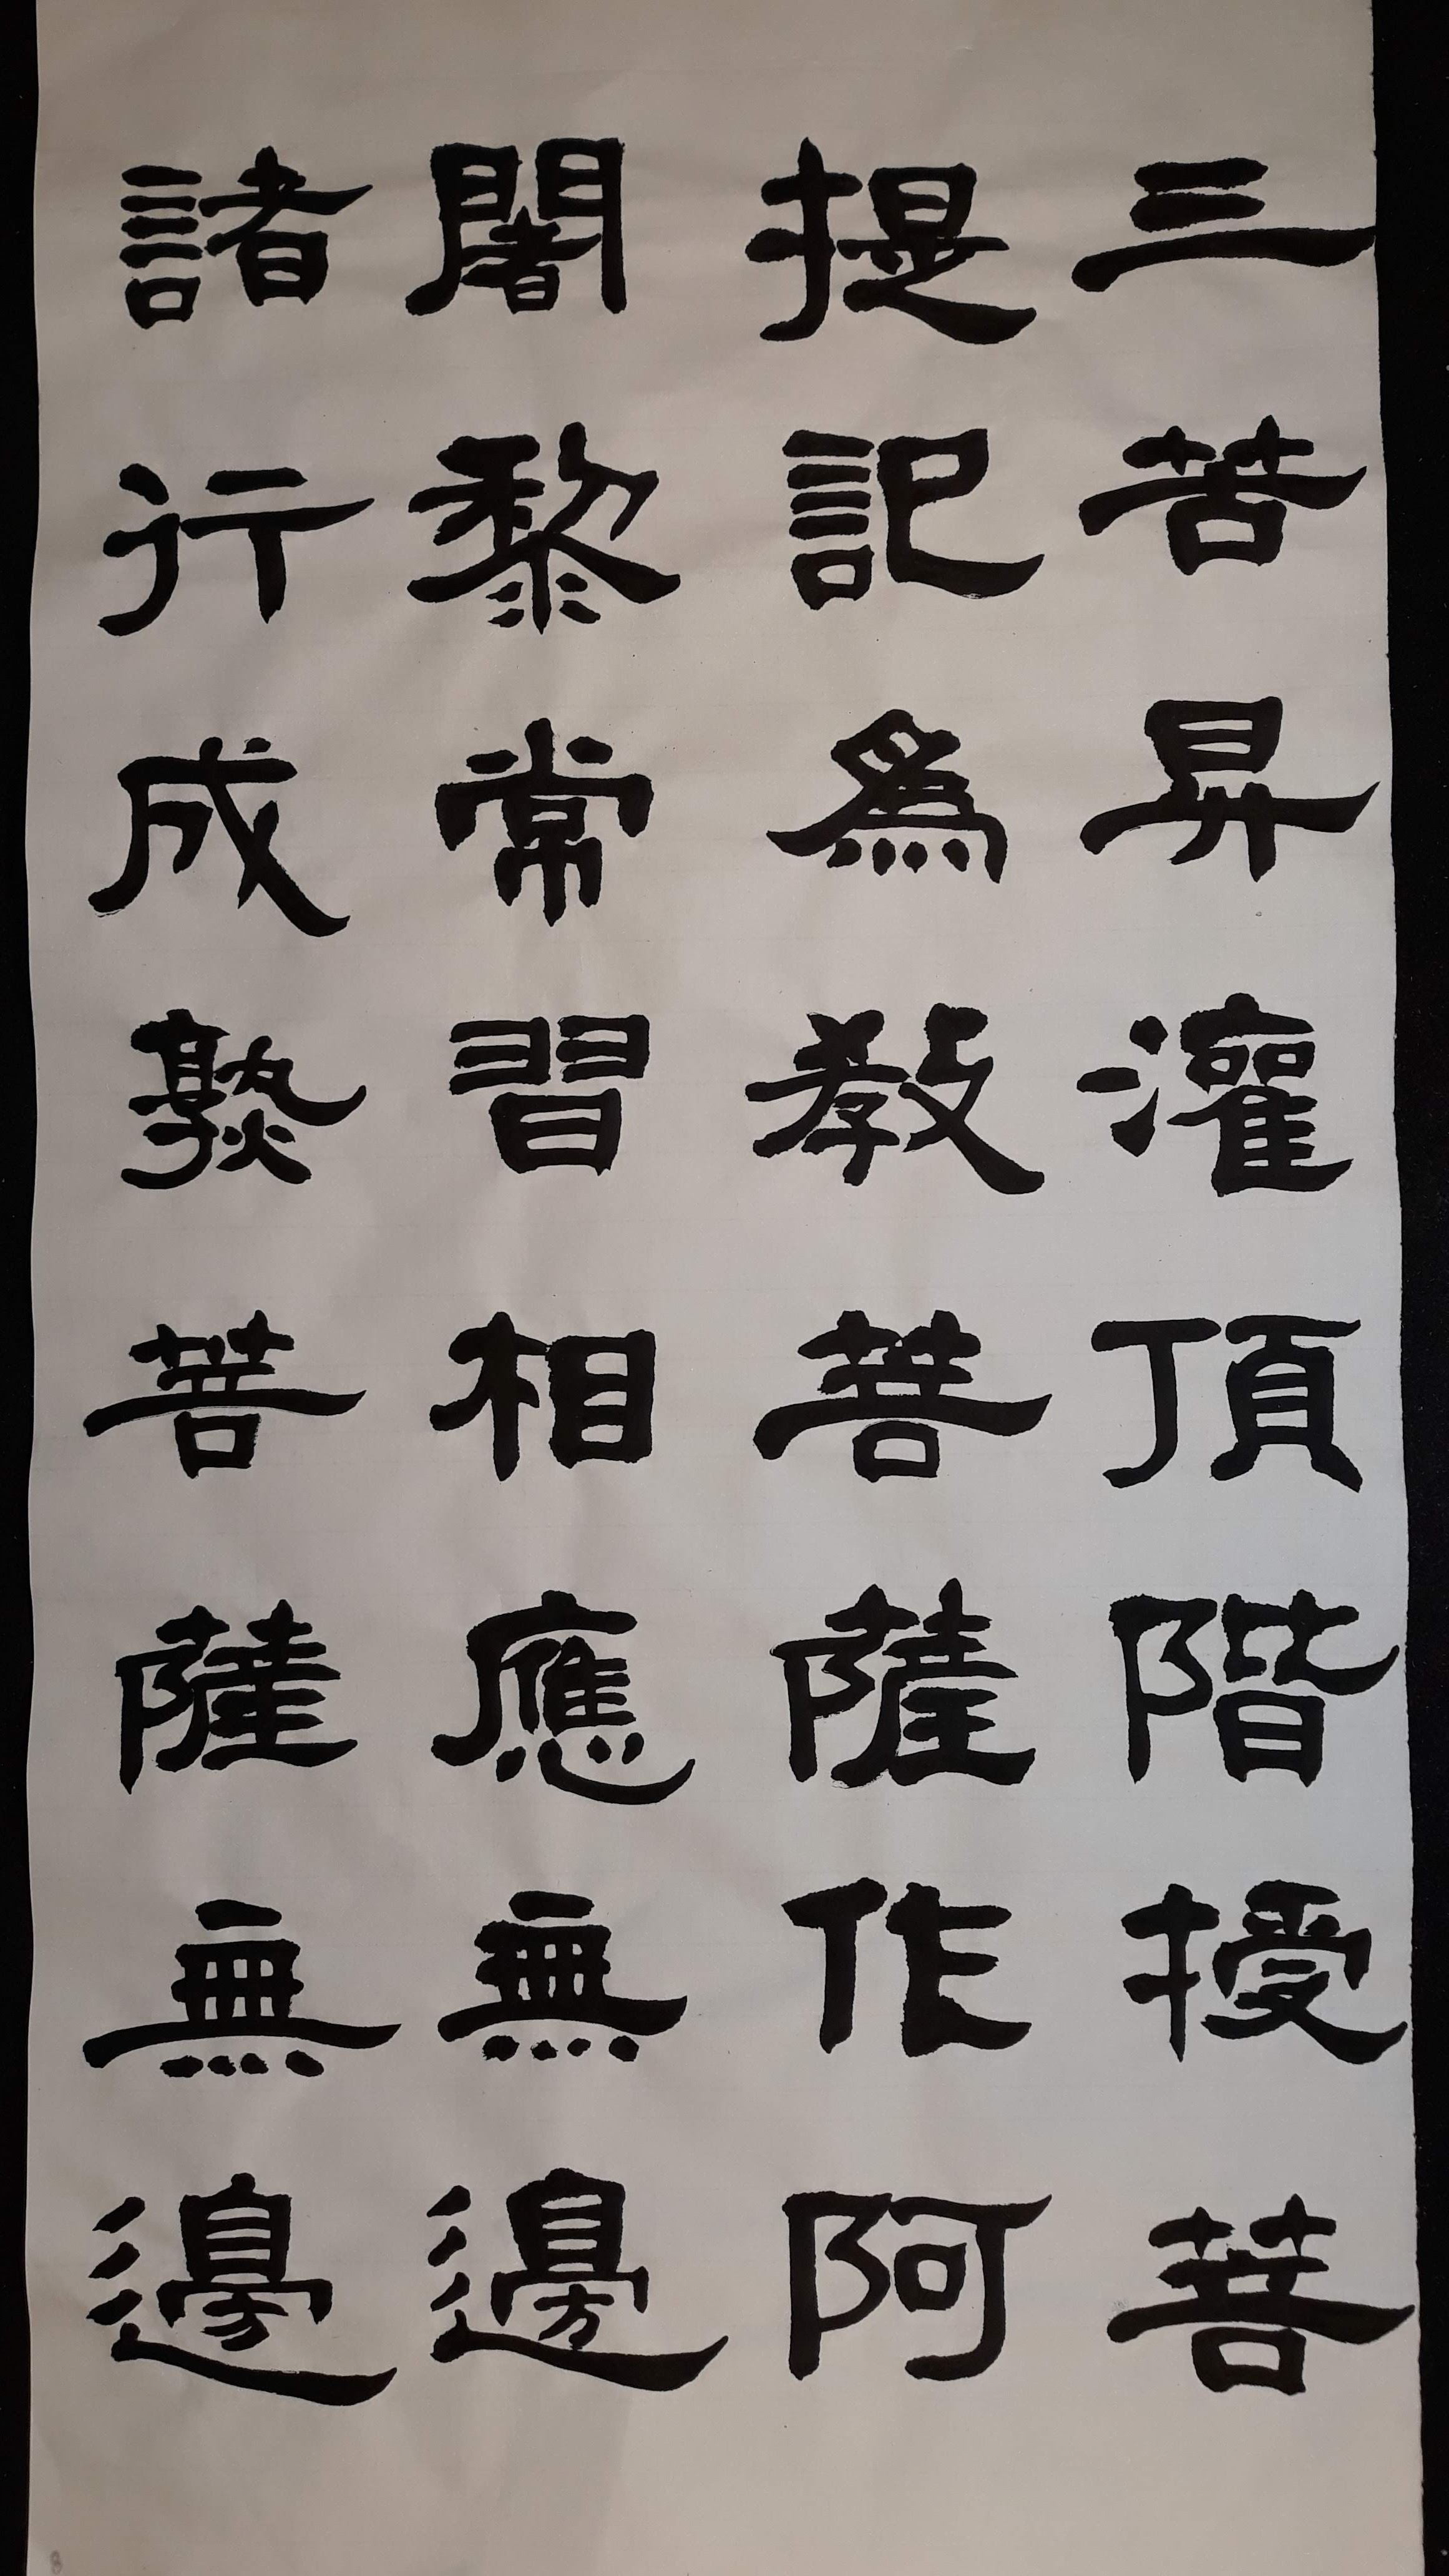 三苦昇灌頂階授菩
提記為教菩薩作阿
闍黎常習相應無邊
諸行成熟菩薩無邊